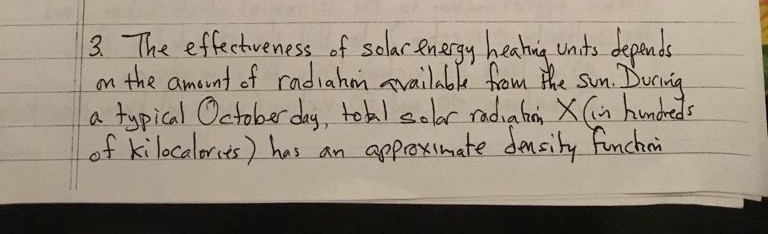 3. The effectiveness of solar energy heating units depends
on the amount of radiation available from the sun. During
a typical October day, total solar radiation X (in hundreds
of kilocalories) has an approximate density function